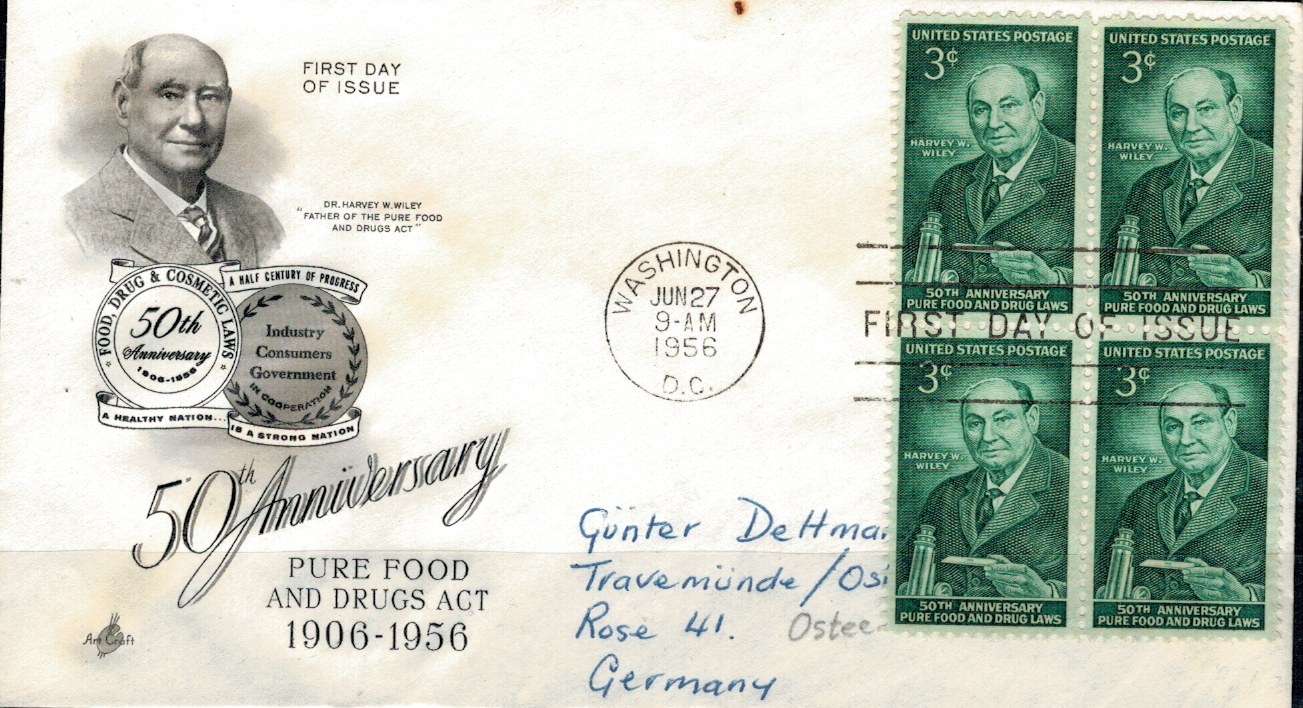 FIRST DAY
OF ISSUE
DR. HARVEY W. WILEY
"FATHER OF THE PURE FOOD
AND DRUGS ACT"
FOOD, DRUG & COSMETIC LAWS
50th
Anniversary
1906-1956
A HALF CENTURY OF PROGRESS
Industry
Consumers
Government
IN COOPERATION
A HEALTHY NATION...
IS A STRONG NATION
50th Anniversary
PURE FOOD
AND DRUGS ACT
1906-1956
Art Craft
WASHINGTON
JUN 27
9-AM
1956
D.C.
FIRST DAY OF ISSUE
UNITED STATES POSTAGE
3¢
HARVEY W.
WILEY
50TH ANNIVERSARY
PURE FOOD AND DRUG LAWS
UNITED STATES POSTAGE
3¢
HARVEY W.
WILEY
50TH ANNIVERSARY
PURE FOOD AND DRUG LAWS
UNITED STATES POSTAGE
3¢
HARVEY W.
WILEY
50TH ANNIVERSARY
PURE FOOD AND DRUG LAWS
UNITED STATES POSTAGE
3¢
HARVEY W.
WILEY
50TH ANNIVERSARY
PURE FOOD AND DRUG LAWS
Günter
Travemünde /
Rose 41. Ostee
Germany